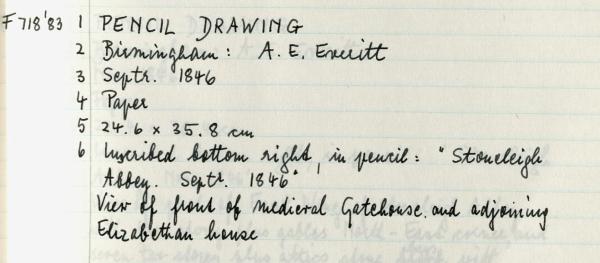 F 718'83 1 PENCIL DRAWING
2 Birmingham: A. E. Everitt
3 Septr. 1846
4 Paper
5 24.6 x 35.8 cm
6 Inscribed bottom right, in pencil: "Stoneleigh
Abbey. Septr. 1846"
View of front of medieval Gatehouse and adjoining
Elizabethan house